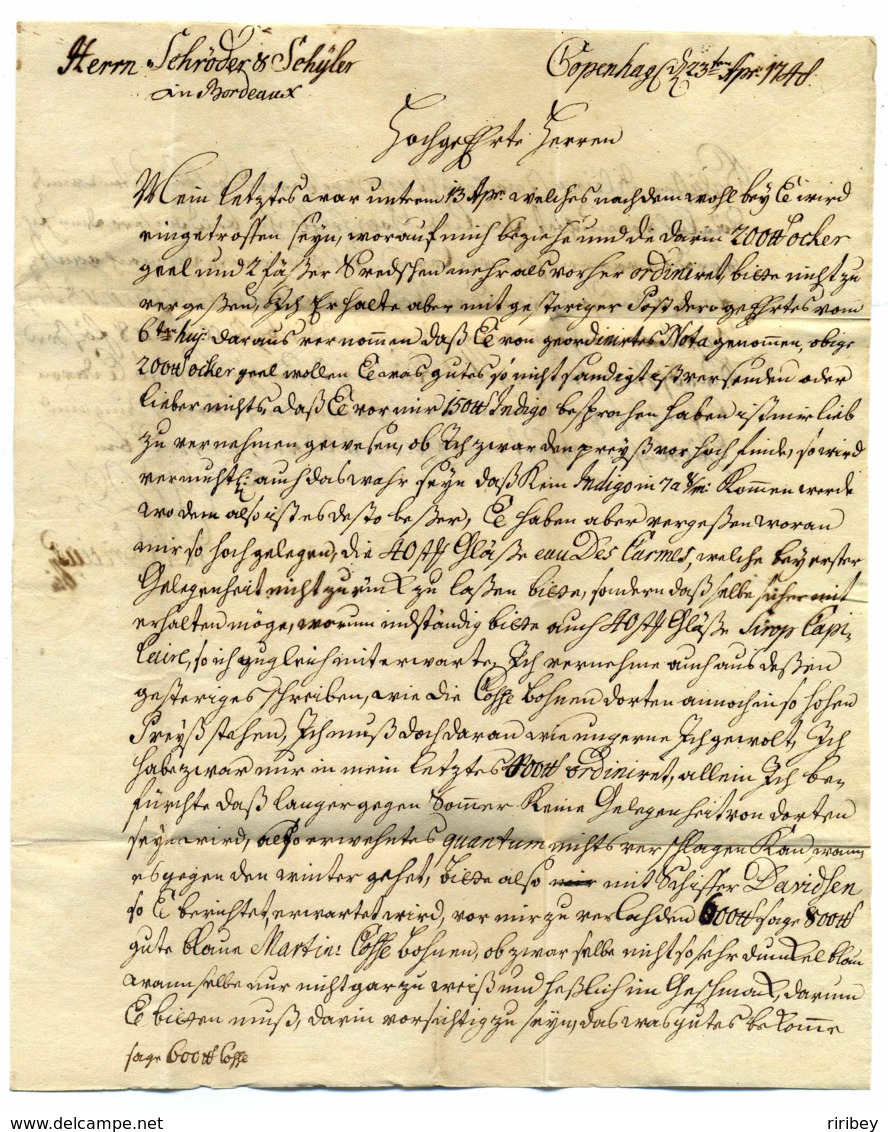 Herrn Schröder & Schÿler
in Bordeaux
Copenhag 23ten Apr: 1748
HochgeEhrte Herren
Mein letztes war unterm 13 Apr: welches nach dem wohl bey Ee wird
eingetroffen seyn, worauf mich beziehe und die darin 200 ℔ ocker
geel und 2 fäßer mehr als vorher ordiniret, bitte nicht zu
vergeßen, Ich Erhalte aber mit gesteriger Post dero geEhrtes vom
6ten huj: daraus vernommen daß Ee von geordinirtes Nota genommen, obige
200 ℔ ocker geel wollen Ee was gutes so nicht sandigt ist versenden oder
lieber nichts, daß Ee vor mir 150 ℔ Indigo besprochen haben ist mir lieb
zu vernehmen gewesen, ob Ich zwar den preyß vor hoch finde, so wird
vermuhtl: auch das wahr seyn daß Kein Indigo in 7 a 8/m: Kommen werde
wo dem also ist es desto beßer, Ee haben aber vergeßen woran
mir so hoch gelegen, die 40 Gläße eau Des Carmes, welche bey erster
Gelegenheit nicht zurück zu laßen bitte, sondern daß selbe sicher mit
erhalten möge, worum inständig bitte auch 40 Gläße Sirop Capi,
laire, so ich zugleich mit erwarte, Ich vernehme auch aus deßen
gesteriges schreiben, wie die Coffe bohnen dorten annoch in so hohen
Preyß stehen, Ich muß doch daran wie ungerne Ich gewolt, Ich
habe zwar nur in mein letztes 400 ℔ ordiniret, allein Ich be,
fürchte daß langer gegen Sommer Keine Gelegenheit von dorten
seyn wird, also erwehntes quantum nichts verschlagen Kan, wann
es gegen den winter gehet, bitte also mit Schiffer Davidsen
so Ee berichtet, erwartet wird, vor mir zu verlahden 600 ℔ sage 800 ℔
gute blaue Martin: Coffe bohnen, ob zwar selbe nicht so sehr dunckel blau
wann selbe nur nicht gar zu weiß und heßlich im Geschmack, darum
Ee bitten muß, darin vorsichtig zu seyn, das was gutes bekomme
sage 600 ℔ Coffe
www.delcampe.net
riribey